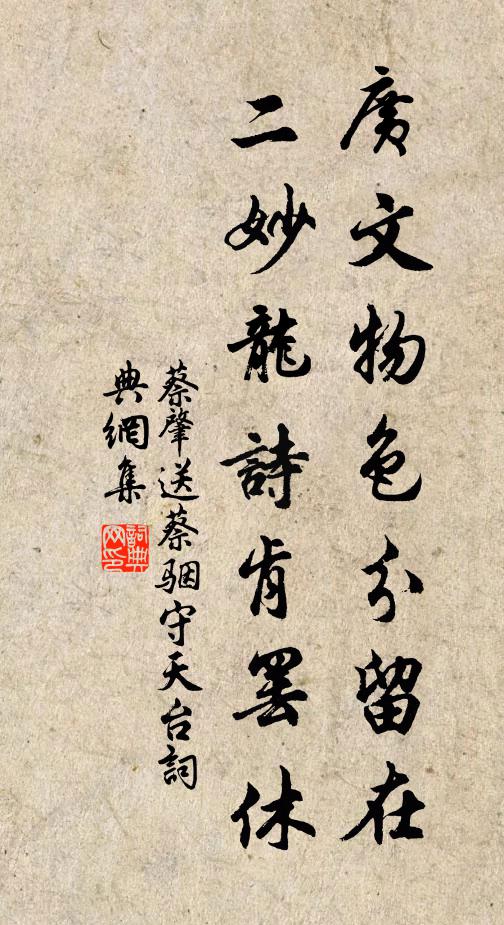 廣文物色分留在
二妙龍詩肯罷休
蔡肇送蔡駰守天台詞
典網集
詞典
網印